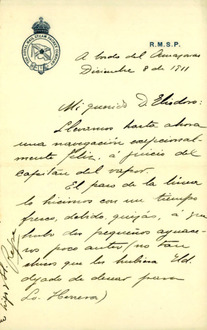 R.M.S.P.
A bordo del Amazonas
Diciembre 8 de 1911
Mi querido D. Eliodoro:
Llevamos hasta ahora
una navegación excepcional-
mente feliz, a juicio del
capitán del vapor.
El paso de la línea
lo hicimos con un tiempo
fresco, debido, quizás, á que
hubo dos pequeños aguace-
ros poco antes (no tan
chicos que les hubiera Ud.
dejado de desear para
La